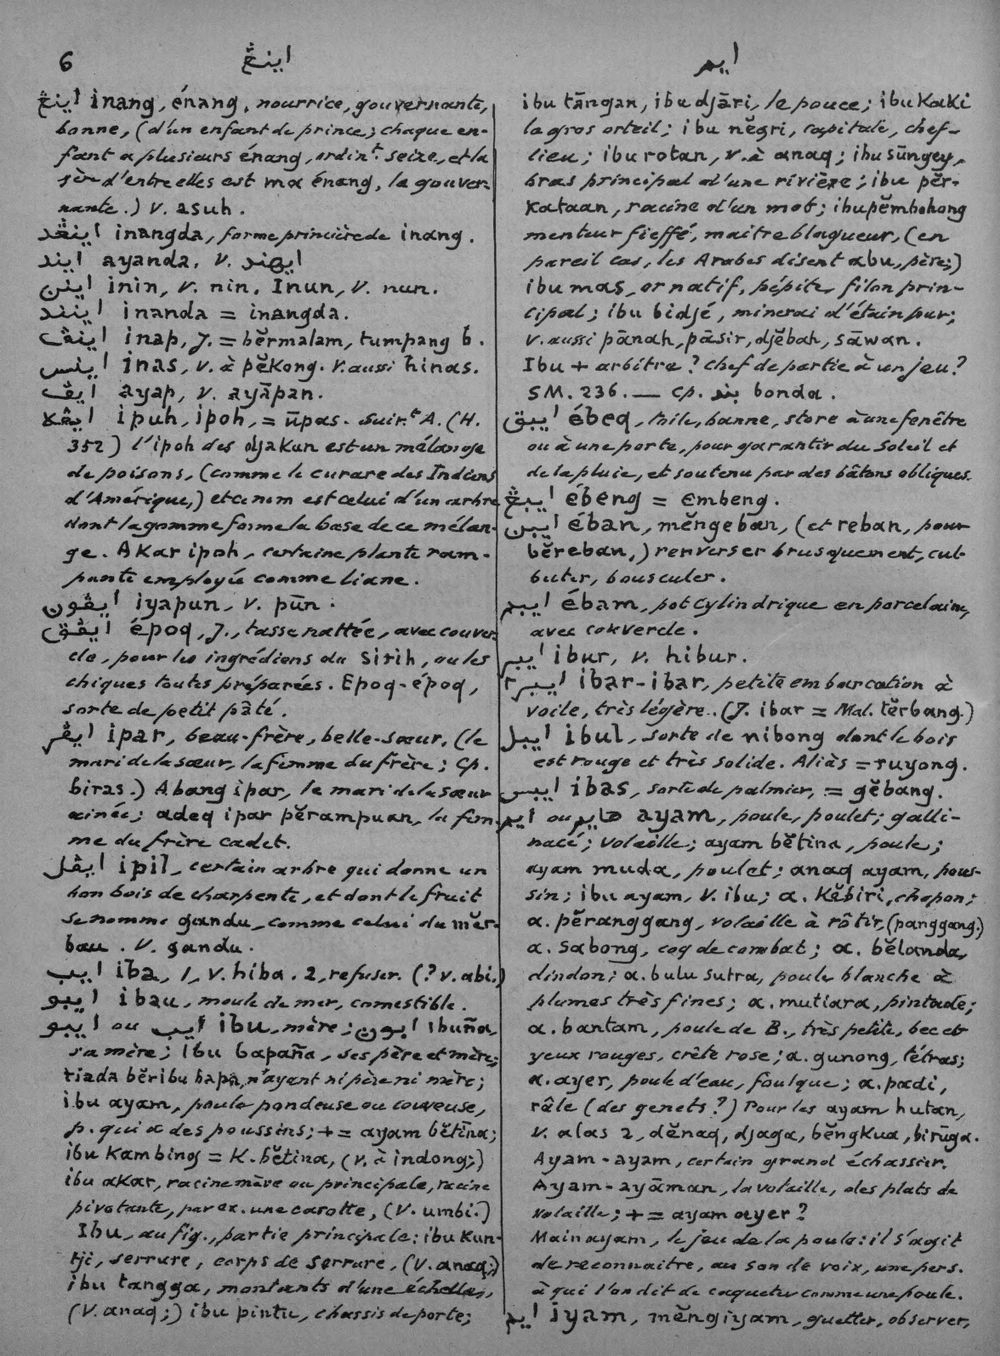 6
اينڠ
ايم
اينڠ inang, énang, nourrice, gouvernante,
bonne, (d'un enfant de prince; chaque en-
fant a plusieurs énang, ordin.t seize, et la
1ère d'entre elles est ma énang, la gouver-
nante.) V. asuh.
اينڠد inangda, forme princière de inang.
ايند ayanda, V. ايهند
اينن inin, V. nin. Inun, V. nun.
اينند inanda = inangda.
اينڤ inap, J. = bĕrmalam, tumpang 6.
اينس inas, V. à pĕkong. V. aussi hinas.
ايڤ ayap, V. ayāpan.
ايڤه ipuh, ipoh, = ūpas. Suiv.t A. (H.
352) l'ipoh des djakun est un mélange
de poisons, (comme le curare des Indiens
d'Amérique,) et ce nom est celui d'un arbre
dont la gomme forme la base de ce mélan-
ge. Akar ipoh, certaine plante ram-
pante employée comme liane.
ايڤون iyapun, V. pūn.
ايڤق époq, J., tasse nattée, avec couver-
cle, pour les ingrédiens du sirih, ou les
chiques toutes préparées. Epoq-époq,
sorte de petit pâté.
ايڤر ipar, beau-frère, belle-sœur, (le
mari de la sœur, la femme du frère; Cp.
biras.) Abang ipar, le mari de la sœur
ainée; adeq ipar pĕrampuan, la fem-
me du frère cadet.
ايڤل ipil, certain arbre qui donne un
bon bois de charpente, et dont le fruit
se nomme gandu, comme celui du mĕr-
bau. V. gandu.
ايب iba, 1, V. hiba. 2, refuser. (? V. abi.)
ايبو ibau, moule de mer, comestible.
ايبو ou ايب ibu, mère; ابون ibuña,
sa mère; ibu bapaña, ses père et mère;
tiada bĕribu bapa, n'ayant ni père ni mère;
ibu ayam, poule pondeuse ou couveuse,
p. qui a des poussins; += ayam bĕtīna;
ibu kambing = k. bĕtina, (V. à indong;)
ibu akar, racine mère ou principale, racine
pivotante, par ex. une carotte, (V. umbi.)
Ibu, au fig., partie principale: ibu kun-
tji, serrure, corps de serrure, (V. anaq;)
ibu tangga, montants d'une échelle,
(V. anaq;) ibu pintu, chassis de porte;
ibu tāngan, ibu djāri, le pouce; ibu kaki
le gros orteil; ibu nĕgri, capitale, chef-
lieu; ibu rotan, V. à anaq; ibu sūngey,
bras principal d'une rivière; ibu pĕr-
kataan, racine d'un mot; ibu pĕmbohong
menteur fieffé, maître blagueur, (en
pareil cas, les Arabes disent abu, père;)
ibu mas, or natif, pépite, filon prin-
cipal; ibu bidjé, minerai d'étain pur;
V. aussi pānah, pāsir, djĕbah, sāwan.
Ibu + arbitre? chef de partie à un jeu?
SM. 236. — Cp. بند bonda.
ايبق ébeq, toile, banne, store à une fenêtre
ou à une porte, pour garantir du soleil et
de la pluie, et soutenu par des bâtons obliques.
ايبڠ ébeng = embeng.
ايبن éban, mĕngeban, (et reban, pour
bĕreban,) renverser brusquement, cul-
buter, bousculer.
ايبم ébam, pot cylindrique en porcelaine,
avec couvercle.
ايبر ibur, V. hibur.
ايبر٢ ibar-ibar, petite embarcation à
voile, très légère. (J. ibar = Mal. tĕrbang.)
ايبل ibul, sorte de nibong dont le bois
est rouge et très solide. Aliàs = ruyong.
ايبس ibas, sorte de palmier, = gĕbang.
ايم ou هايم ayam, poule, poulet; galli-
nacé; volaille; ayam bĕtina, poule;
ayam muda, poulet; anaq ayam, pous-
sin; ibu ayam, V. ibu; a. kĕbiri, chapon;
a. pĕranggang, volaille à rôtir, (panggang;)
a. sabong, coq de combat; a. bĕlanda,
dindon; a. bulu sutra, poule blanche à
plumes très fines; a. mutiara, pintade;
a. bantam, poule de B., très petite, bec et
yeux rouges, crête rose; a. gunong, tétras;
a. ayer, poule d'eau, foulque; a. padi,
râle (des genets?) Pour les ayam hutan,
V. alas 2, dĕnaq, djaga, bĕngkua, birūga.
Ayam-ayam, certain grand échassier.
Ayam-ayāman, la volaille, des plats de
volaille; += ayam ayer?
Main ayam, le jeu de la poule: il s'agit
de reconnaitre, au son de voix, une pers.
à qui l'on dit de caqueter comme une poule.
ايم iyam, mĕngiyam, guetter, observer,